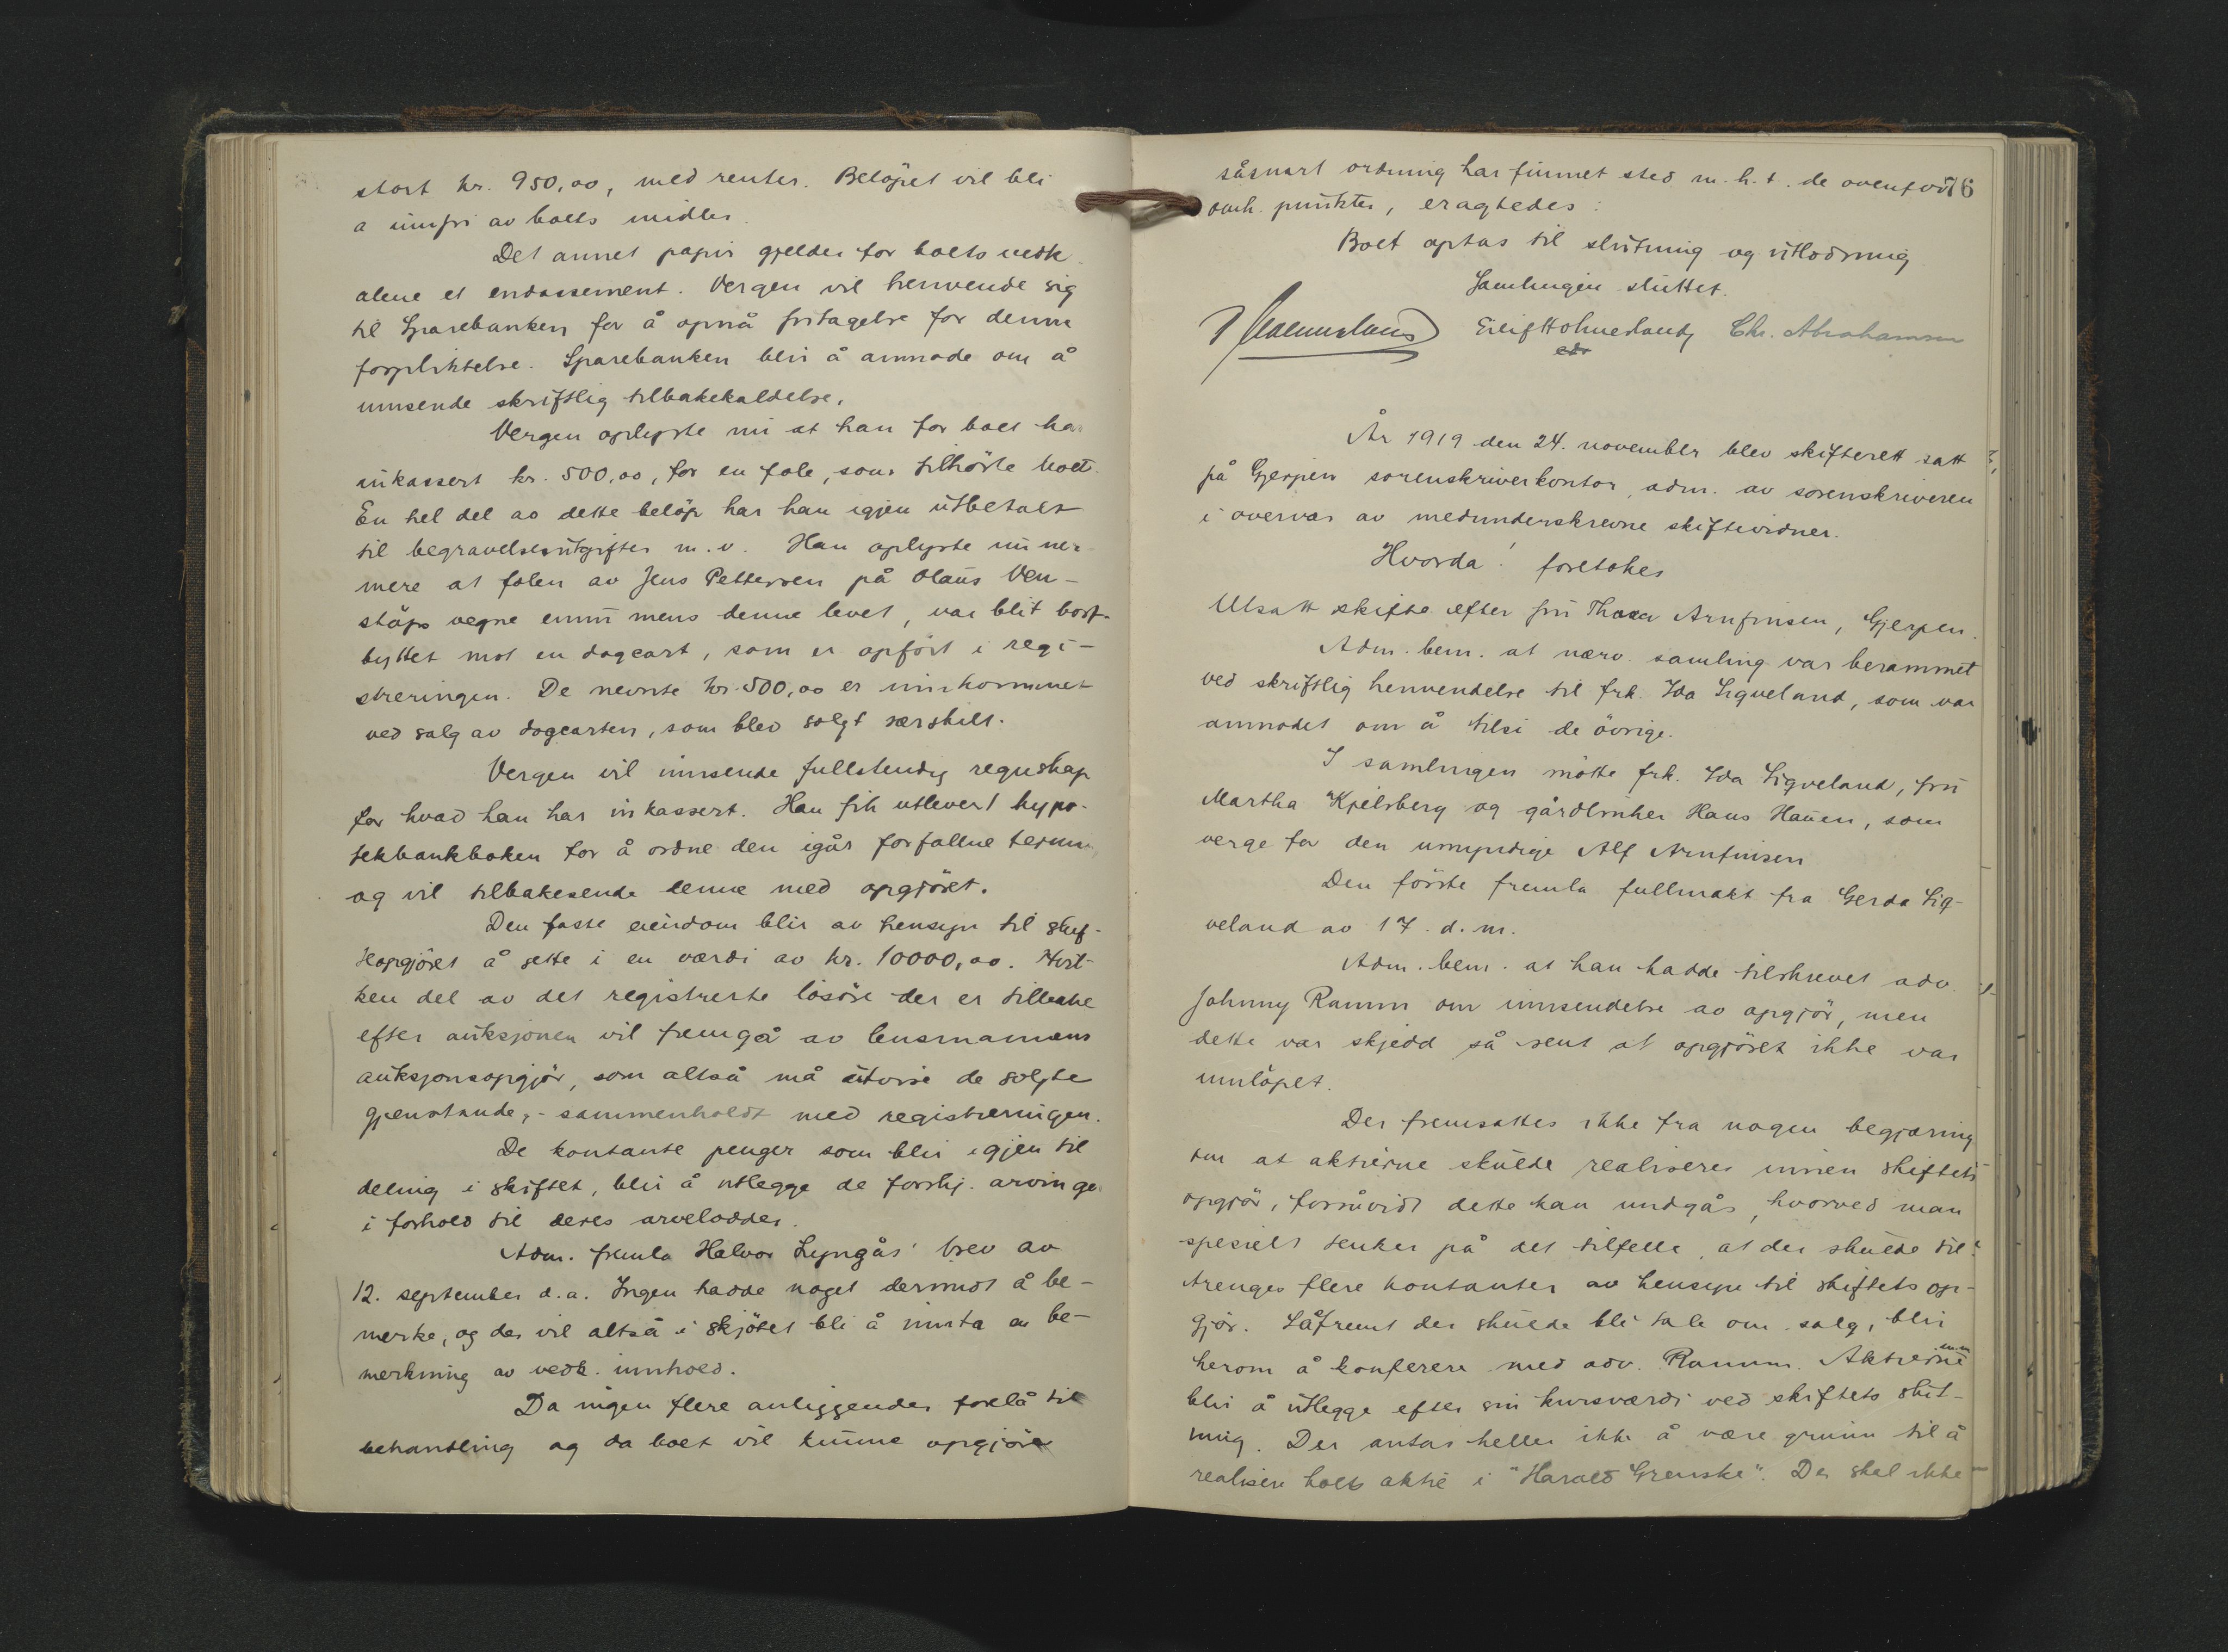 stort kr. 950,00, med renter. Beløpet vil bli
å innfri av boets midler.
Det annet papir gjelder for boets vedk.
alene et endossement. Vergen vil henvende sig
til Sparebanken for å opnå fritagelse for denne
forpliktelse. Sparebanken blir å anmode om å
innsende skriftlig tilbakekaldelse.
Vergen oplyste nu at han for boet har
inkassert kr. 500,00, for en fole, som tilhörte boet.
En hel del av dette belöp har han igjen utbetalt
til begravelsesutgifter m.v. Han oplyste nu nær-
mere at folen av Jens Pettersen på Olaus Ven-
stöps vegne ennu mens denne levet, var blit bort-
byttet mot en dogcart, som er opfört i regi-
streringen. De nevnte kr. 500,00 er innkommet
ved salg av dogcarten, som blev solgt særskilt.
Vergen vil innsende fullstendig regnskap
for hvad han har inkassert. Han fik utlevert hypo-
tekbankboken for å ordne den igår forfallne termin
og vil tilbakesende denne med opgjöret.
Den faste eiendom blir av hensyn til skif-
teopgjöret å sette i en værdi av kr. 10000,00. Hvil-
ken del av det registrerte lösöre der er tilbake
efter auksjonen vil fremgå av lensmannens
auksjonsopgjör, som altså må utvise de solgte
gjenstande, - sammenholdt med registreringen.
De kontante penger som blir igjen til
deling i skiftet, blir å utlegge de forskj. arvinger
i forhold til deres arvelodder.
Adm. fremla Halvor Lyngås' brev av
12. september d.a. Ingen hadde noget derimot å be-
merke, og der vil altså i skjötet bli å innta en be-
merkning av vedk. innhold.
Da ingen flere anliggender forelå til
behandling og da boet vil kunne opgjöres
76
såsnart ordning har funnet sted m.h.t. de ovenfor
omh. punkter, eragtedes:
Boet optas til slutning og utlodning
Samlingen sluttet.
Eilif Holmesland Chr. Abrahamsen
edv
År 1919 den 24. november blev skifterett satt
på Gjerpen sorenskriverkontor, adm. av sorenskriveren
i overvær av medunderskrevne skiftevidner.
Hvorda! foretokes
Utsatt skifte efter fru Thora Arnfinsen, Gjerpen.
Adm. bem. at nærv. samling var berammet
ved skriftlig henvendelse til frk. Ida Sigveland, som var
anmodet om å tilsi de övrige.
I samlingen mötte frk. Ida Sigveland, fru
Martha Kjelsberg og gårdbruker Hans Hauen, som
verge for den umyndige Alf Arnfinsen
Den förste fremla fullmakt fra Gerda Sig-
veland av 17. d.m.
Adm. bem. at han hadde tilskrevet adv.
Johnny Ramm om innsendelse av opgjör, men
dette var skjedd så sent at opgjöret ikke var
innlöpet.
Der fremsattes ikke fra nogen begjæring
om at aktierne skulde realiseres innen skiftets
opgjör, forsåvidt dette kan undgås, hvorved man
spesielt tenker på det tilfelle, at der skulde til-
trenges flere kontanter av hensyn til skiftets op-
gjör. Såfremt der skulde bli tale om salg, blir
herom å konferere med adv. Ramm. Aktierne
blir å utlegge efter sin kursværdi ved skiftets slut-
ning. Der antas heller ikke å være grunn til å
realisere boets aktie i "Harald Grenske". Der skal ikke